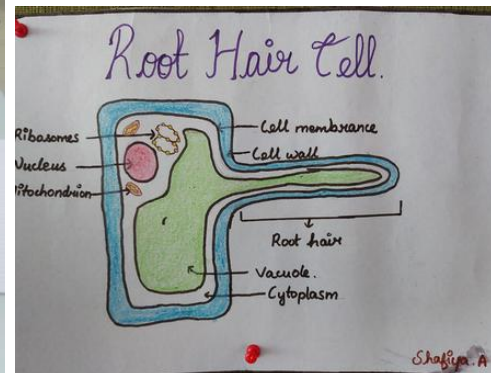 Root Hair Cell.
Ribosomes
Nucleus
Mitochondrion
Cell membrance
Cell wall
Root hair
Vacuole.
Cytoplasm
Shafiya. A